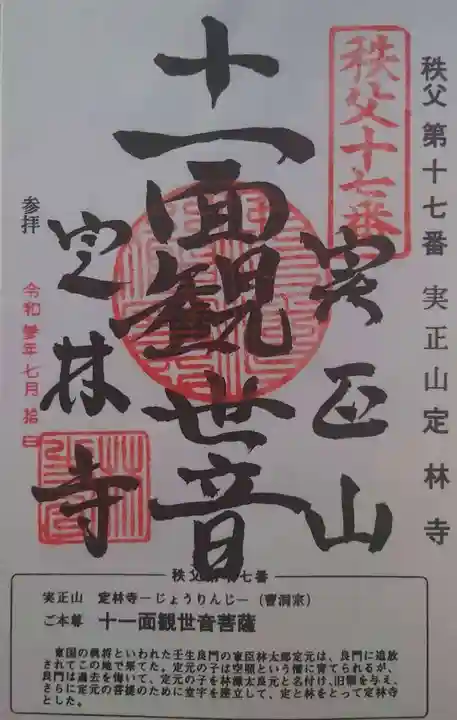 秩父 第十七番 実正山定林寺
秩父十七番
実正山
十一面観世音
定林寺
参拝
令和参年七月拾日
秩父第十七番
実正山 定林寺―じょうりんじ―(曹洞宗)
ご本尊 十一面観世音菩薩
東国の勇将といわれた壬生良門の家臣林太郎定元は、良門に追放
されてこの地で果てた。定元の子は空照という僧に育てられるが、
良門は過去を悔いて、定元の子を林源太良元と名付け、旧領を与え、
さらに定元の菩提のために堂宇を建立して、定と林をとって定林寺
とした。